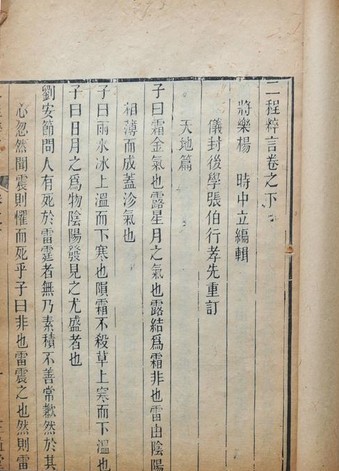 二程粹言卷之下
將樂楊 時中立編輯
儀封後學張伯行孝先重訂
天地篇
子曰霜金氣也露星月之氣也露結爲霜非也雷由陰陽
相薄而成蓋沴氣也
子曰雨水冰上溫而下寒也隕霜不殺草上寒而下溫也
子曰日月之爲物陰陽發見之尤盛者也
劉安節問人有死於雷霆者無乃素積不善常歉然於其
心忽然聞震則懼而死乎子曰非也雷震之也然則雷